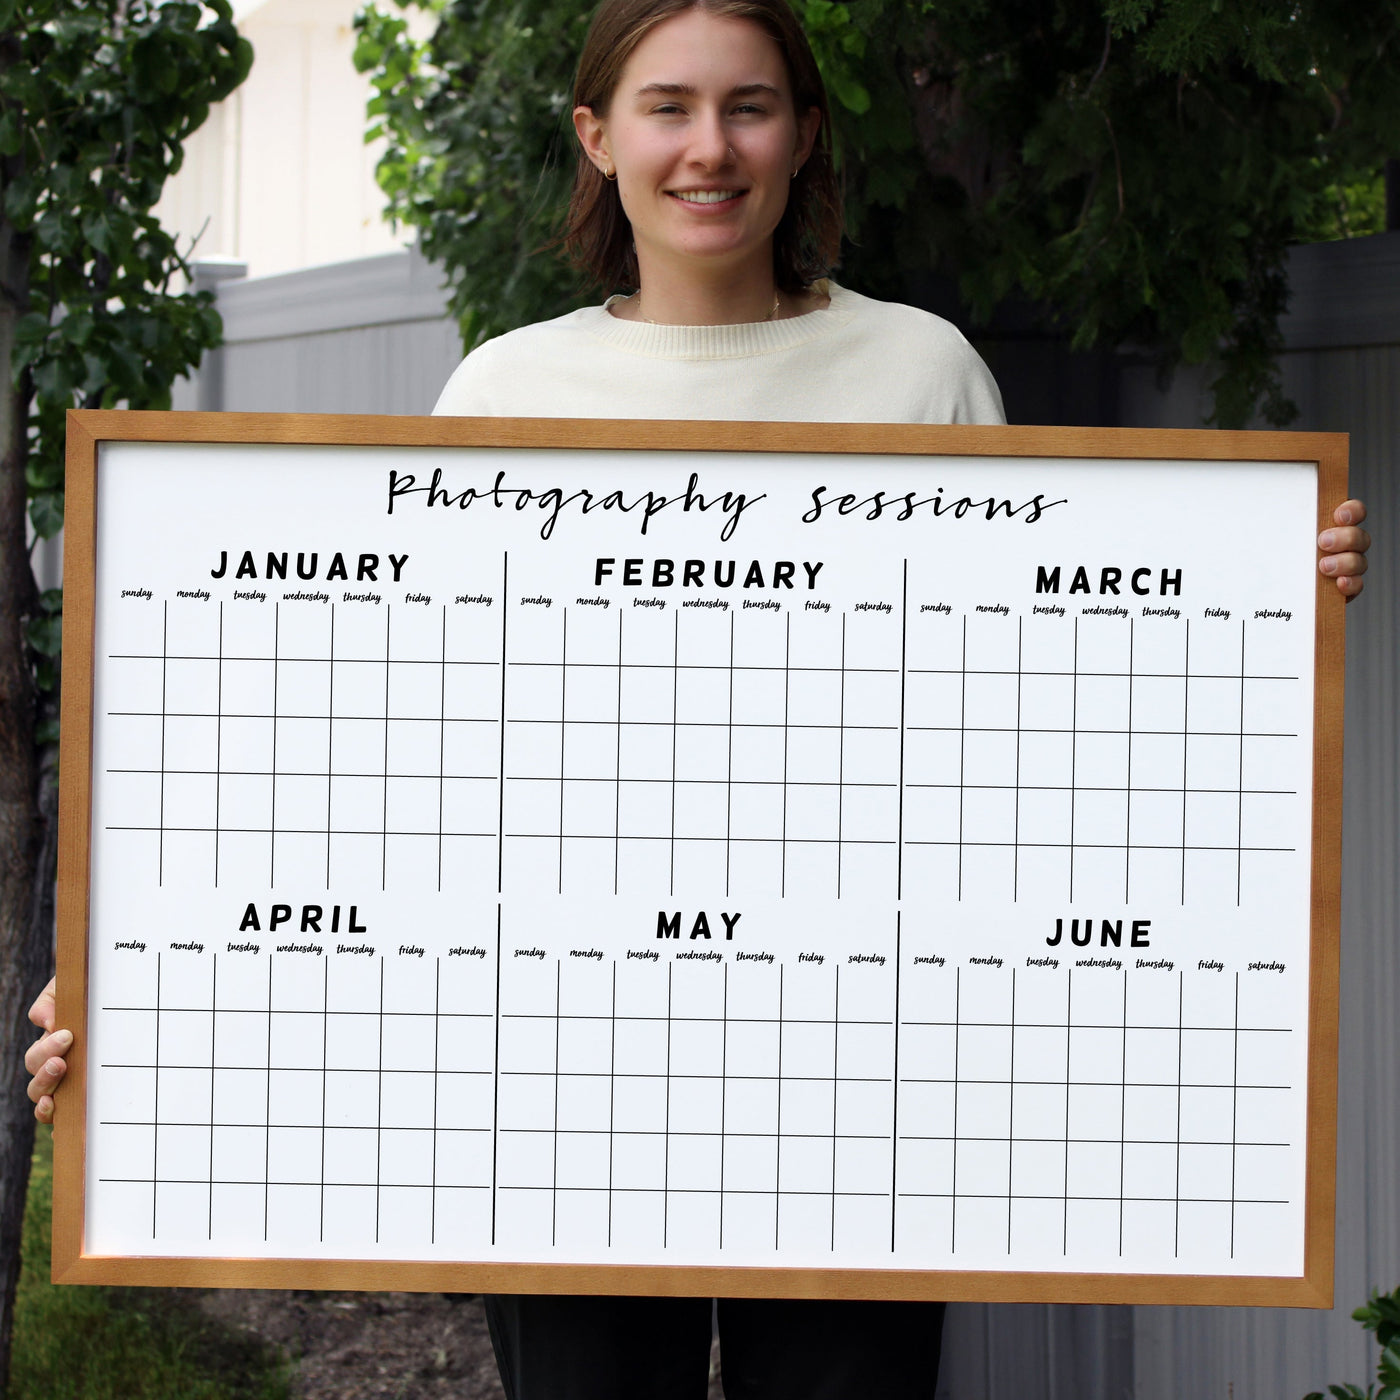 Photography sessions
JANUARY FEBRUARY MARCH
sunday monday tuesday wednesday thursday friday saturday sunday monday tuesday wednesday thursday friday saturday sunday monday tuesday wednesday thursday friday saturday
APRIL MAY JUNE
sunday monday tuesday wednesday thursday friday saturday sunday monday tuesday wednesday thursday friday saturday sunday monday tuesday wednesday thursday friday saturday